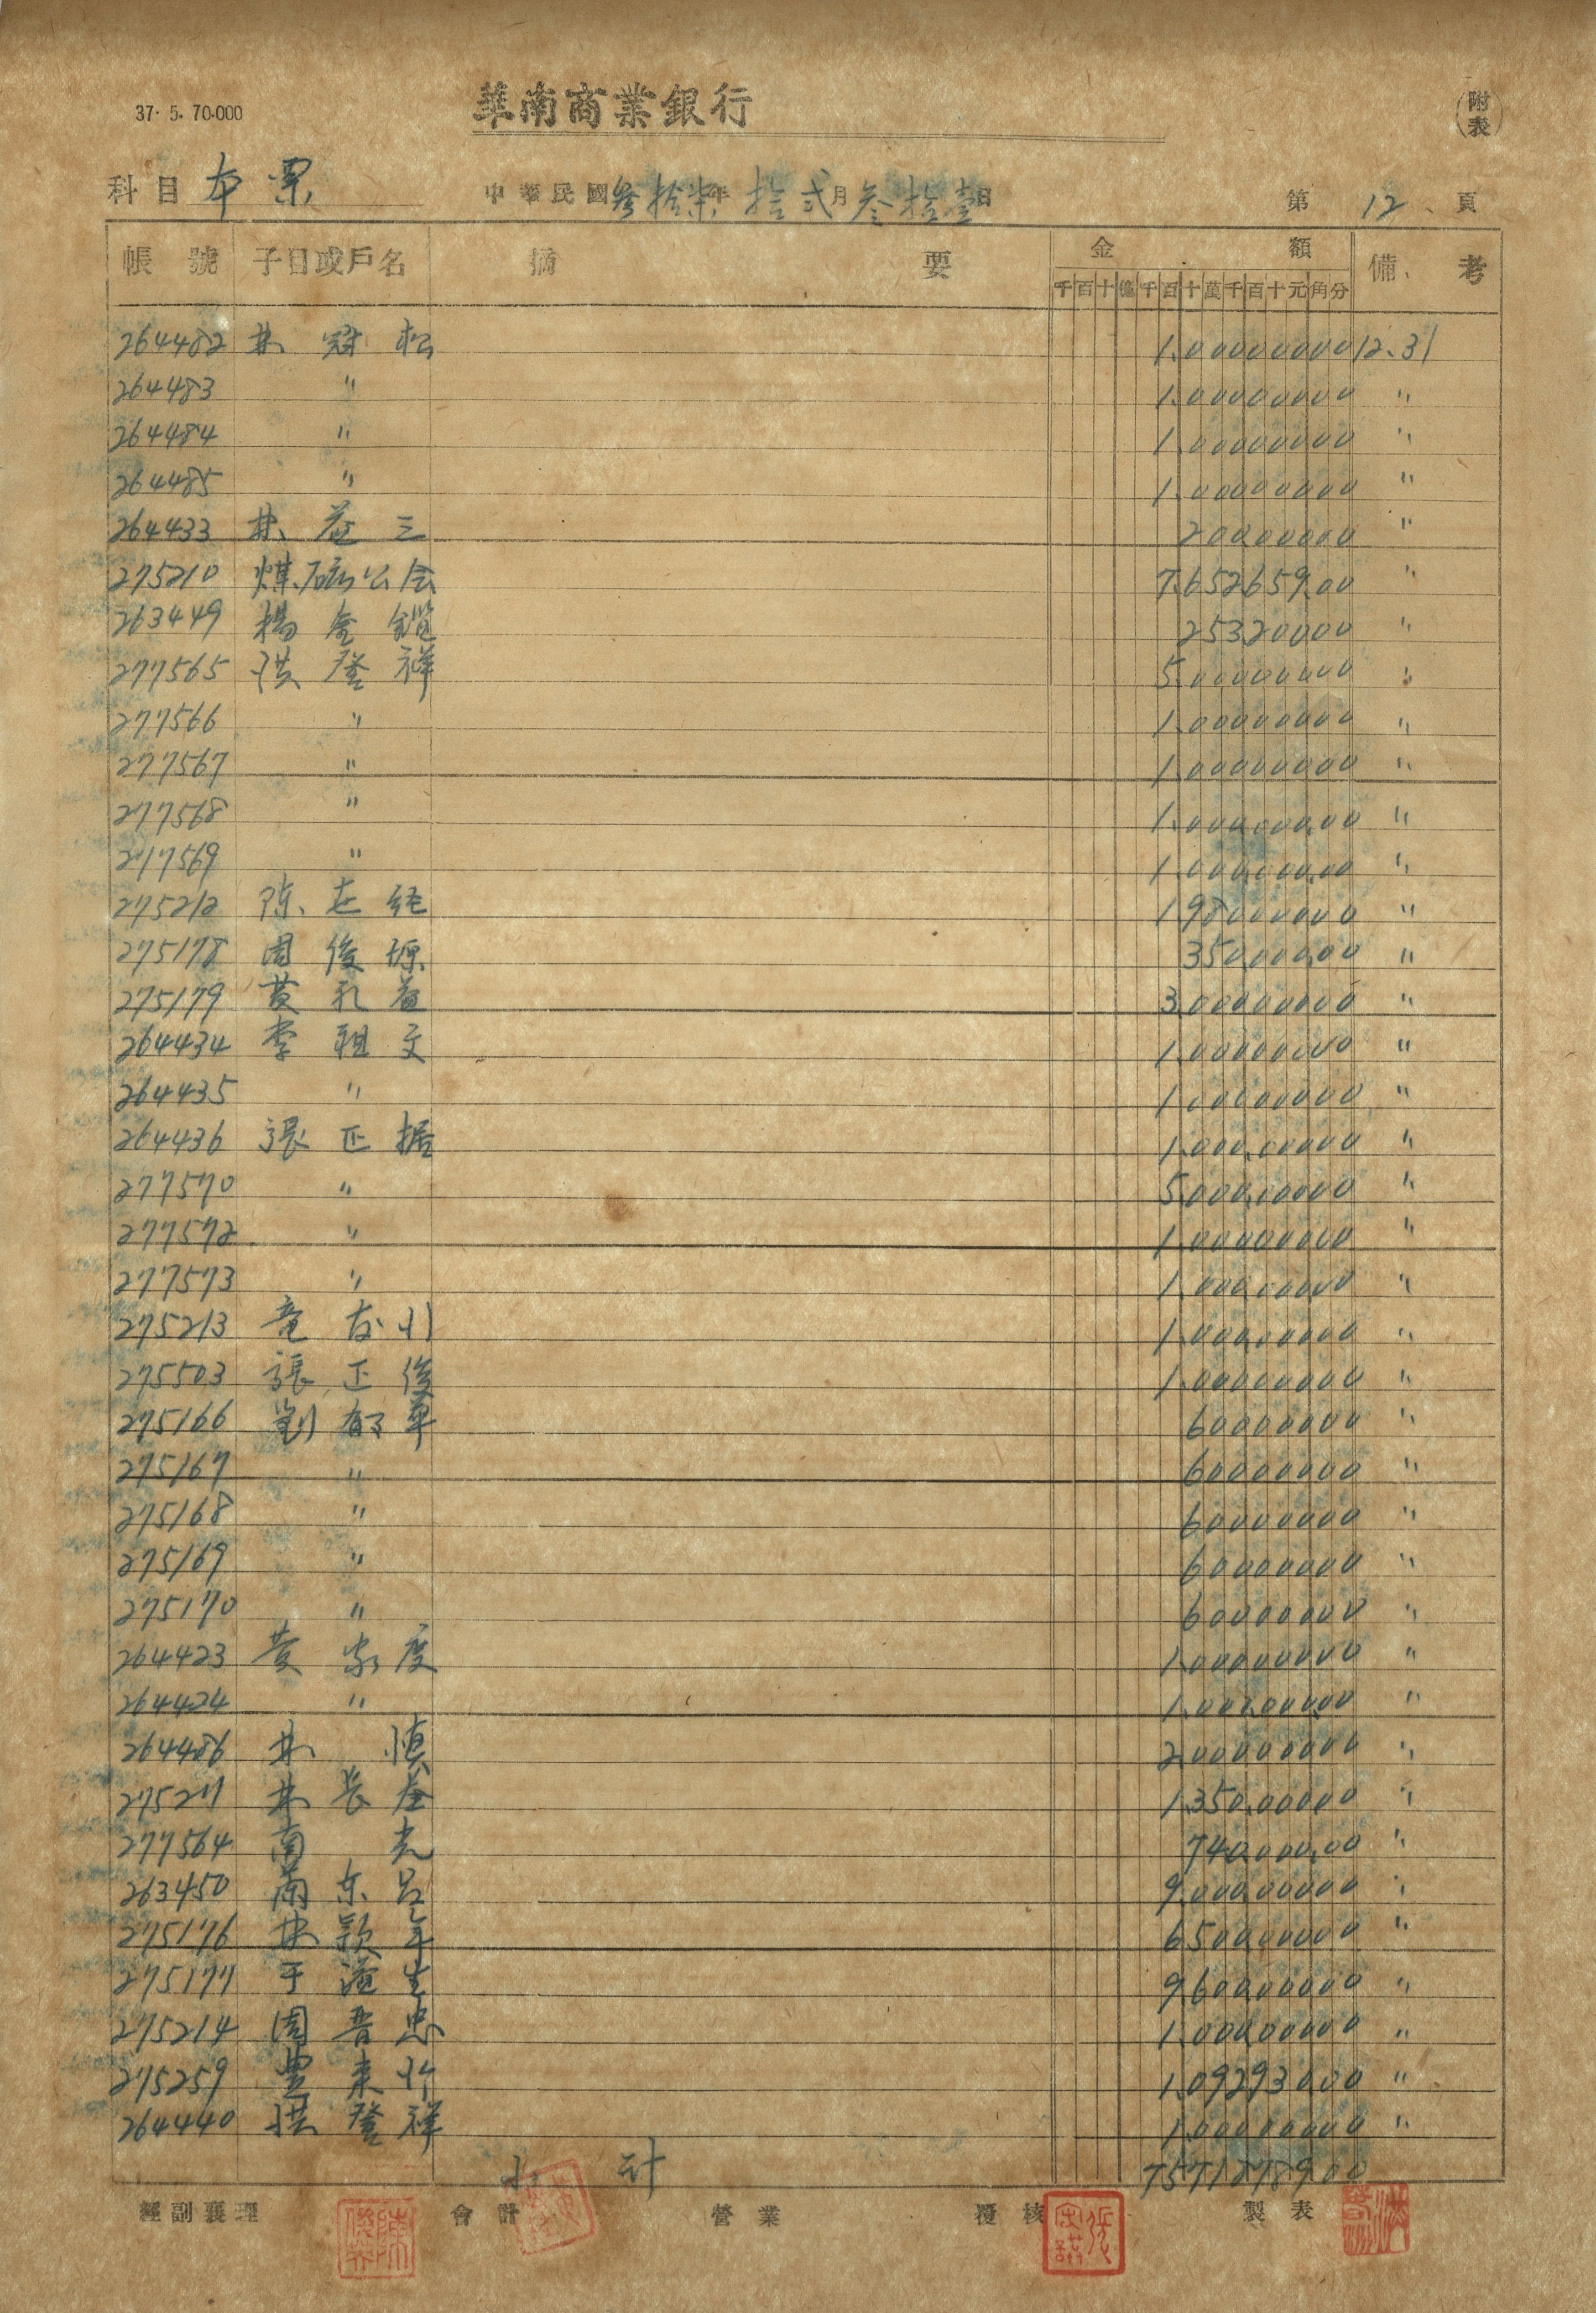 37. 5. 70.000
華南商業銀行
附表
科目 本票 中華民國叁拾柒年拾弍月叁拾壹日 第 12 頁
帳號 子目或戶名 摘要 金額 備考
千百十億千百十萬千百十元角分
264482 林冠松 1.00000000 12.31
264483 〃 1.00000000 〃
264484 〃 1.00000000 〃
264485 〃 1.00000000 〃
264433 林益三 20000000 〃
275210 煤砿公会 7.652659.00 〃
263449 楊金鎧 25320000 〃
277565 洪登祥 5.00000000 〃
277566 〃 1.00000000 〃
277567 〃 1.00000000 〃
277568 〃 1.00000000 〃
277569 〃 1.00000000 〃
275212 陈在経 198000000 〃
275178 周俊塬 35000000 〃
275179 黄孔益 3.00000000 〃
264434 李祖文 1.00000000 〃
264435 〃 1.00000000 〃
264436 張正据 1.00000000 〃
277570 〃 5.00000000 〃
277572 〃 1.00000000 〃
277573 〃 1.00000000 〃
275213 1.00000000 〃
275503 張正俊 1.00000000 〃
275166 劉郁華 60000000 〃
275167 〃 60000000 〃
275168 〃 60000000 〃
275169 〃 60000000 〃
275170 〃 60000000 〃
264423 黄家度 1.00000000 〃
264424 〃 1.00000000 〃
264486 林慎 2.00000000 〃
275211 林長 1.35000000 〃
277564 南光 74000000 〃
263450 蘭东呂 9.00000000 〃
275176 林穎年 650000000 〃
275177 于滙生 960000000 〃
275214 周晋忠 1.00000000 〃
275259 豊来行 1.09293000 〃
264440 洪登祥 1.00000000 〃
小計 7571278900
經副襄理 會計 營業 覆核 製表